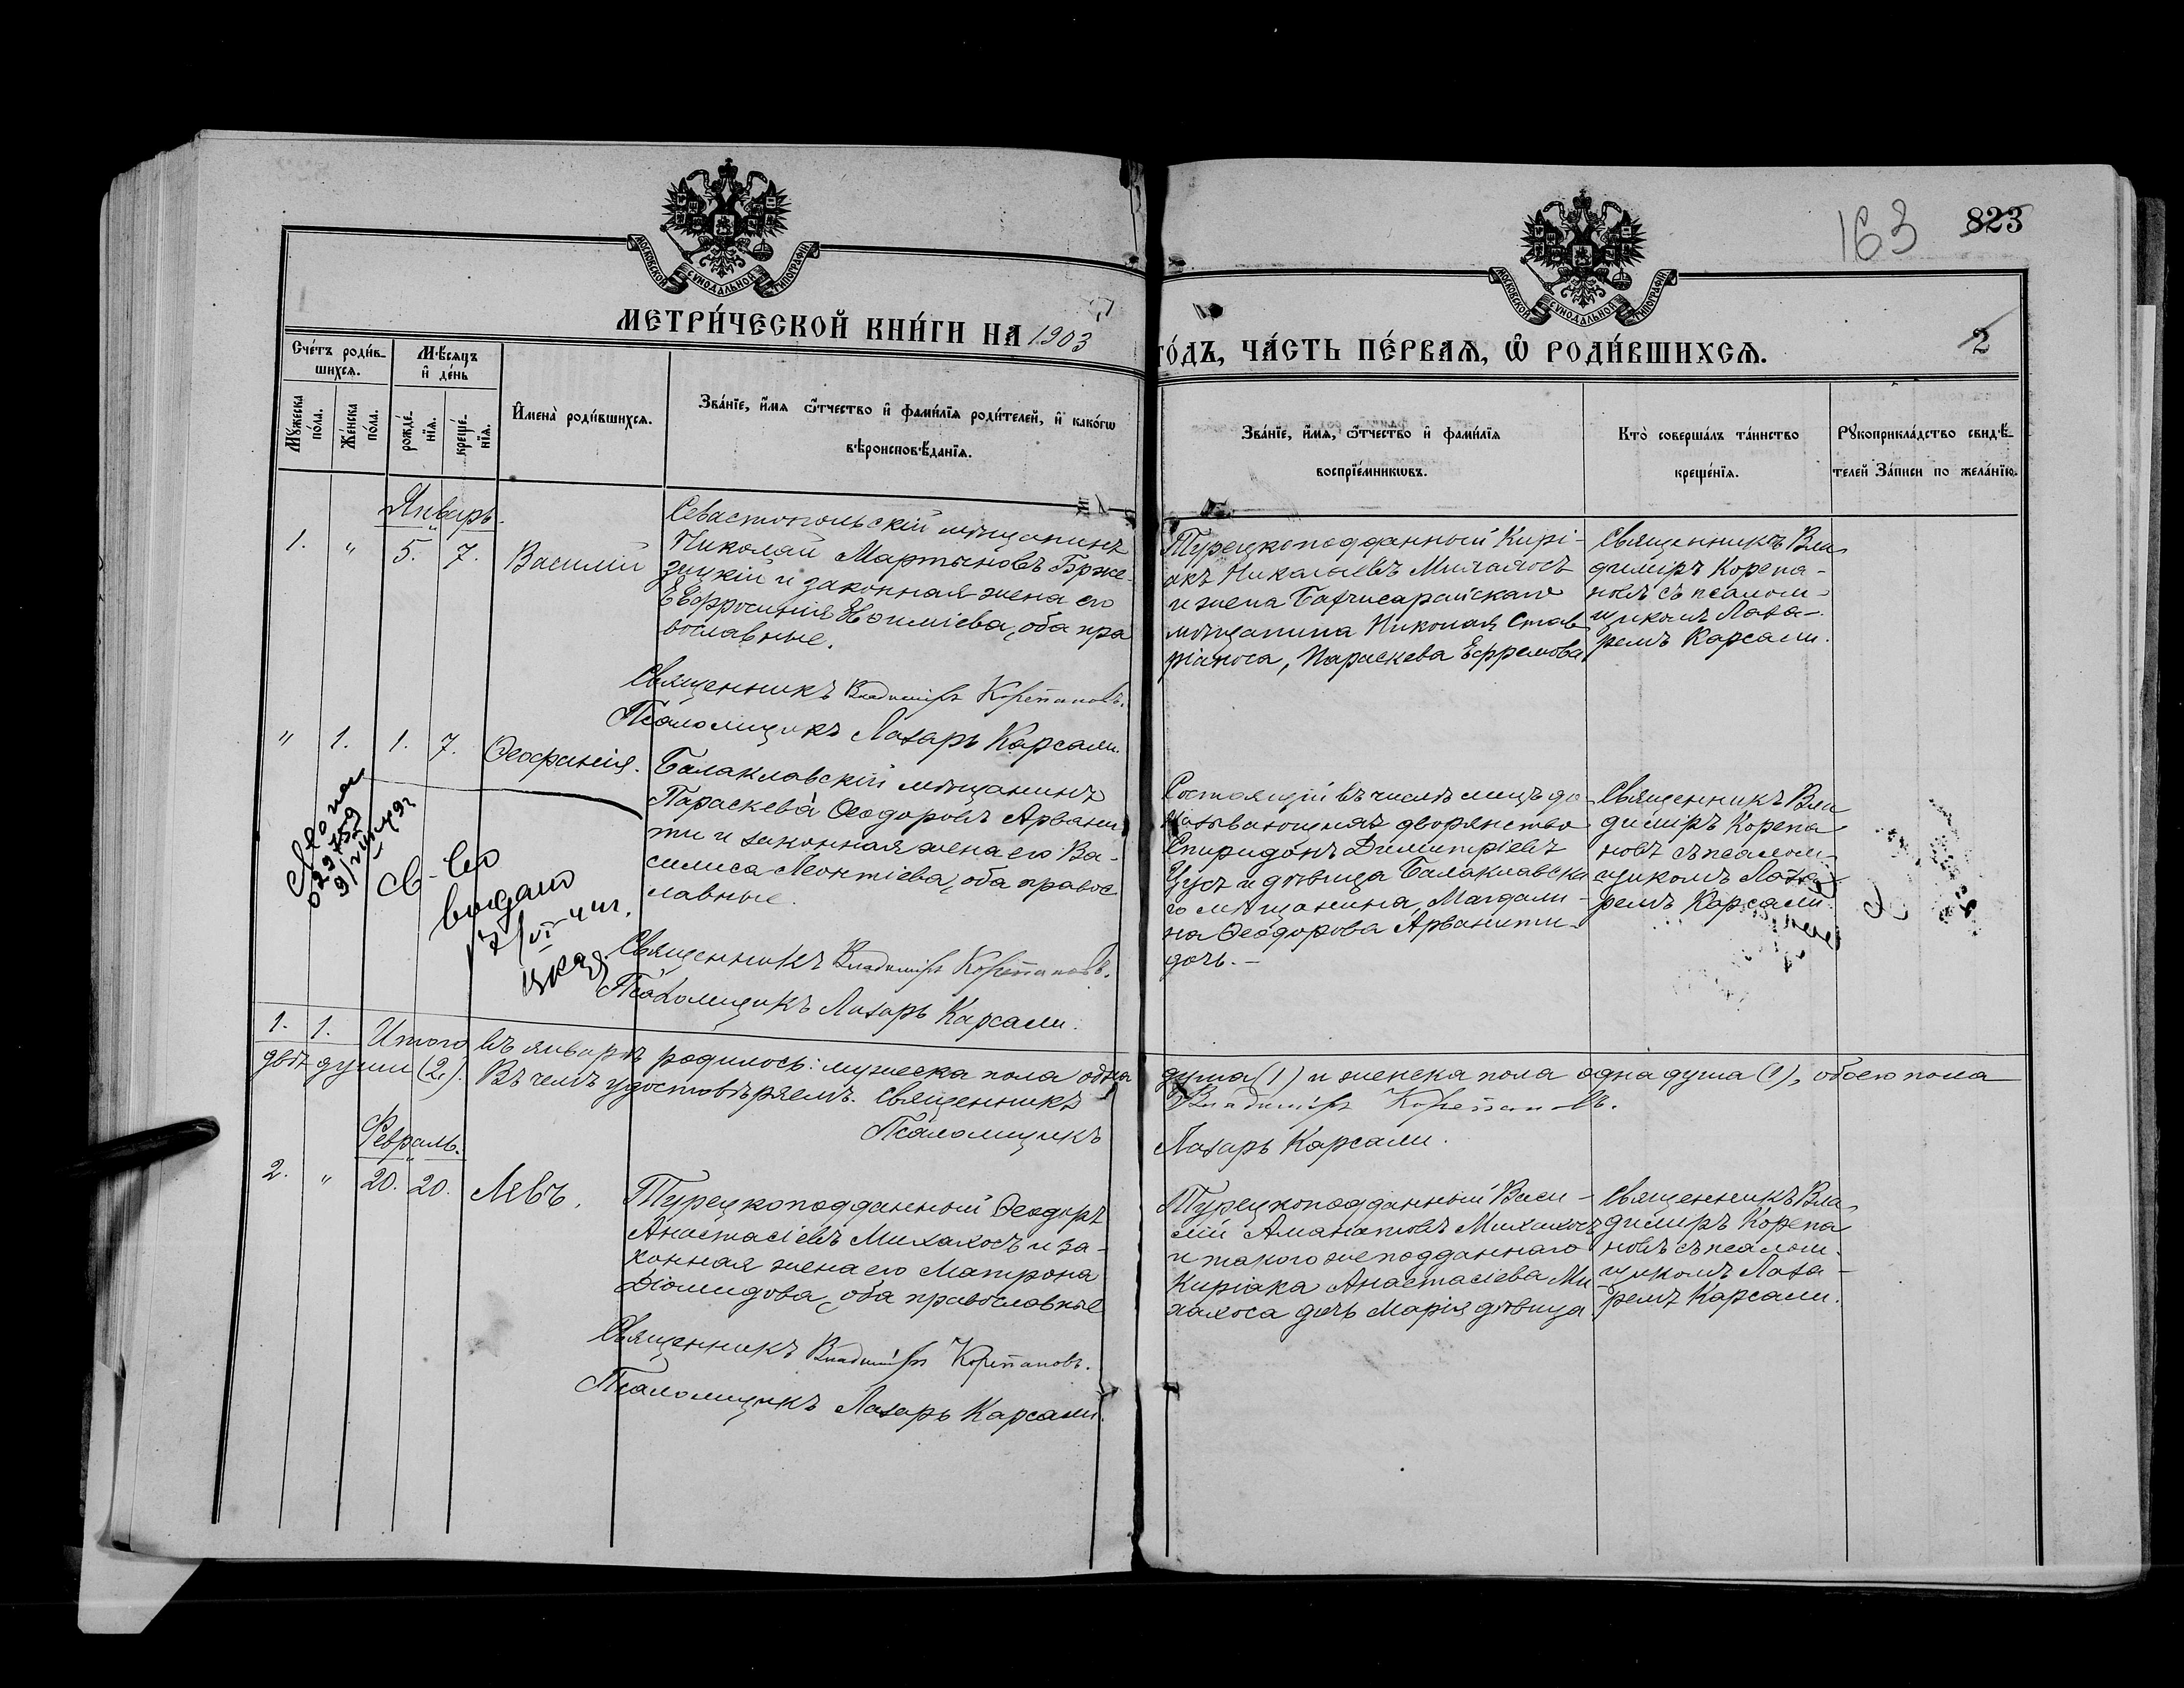 163 823
МОСКОВСКОЙ СѴНОДАЛЬНОЙ ТИПОГРАФІИ
МОСКОВСКОЙ СѴНОДАЛЬНОЙ ТИПОГРАФІИ
МЕТРИ́ЧЕСКОЙ КНИ́ГИ НА 1903
ГО́ДЪ, ЧА́СТЬ ПЕ́РВАЯ, Ѽ РОДИ́ВШИХСЯ.
2
Сче́тъ роди́в-
шихся.
Мѣ́сяцъ
и де́нь
Мꙋжеска
по́ла.
Же́нска
по́ла.
рожде́-
нїя.
креще́-
нїя.
И́мена̀ роди́вшихся.
Зва́нїе, и́мя ѻ҆́тчество и фами́лїя роди́телей, и како́гѡ
вѣроисповѣ́данїя.
Зва́нїе, и́мя, ѻ҆́тчество и фами́лїя
воспрїе́мникѡвъ.
Кто̀ соверша́лъ та́инство
креще́нїя.
Рꙋкоприкла́дство свидѣ́-
телей За́писи по жела́нїю.
Январь.
1. " 5. 7. Василій
Севастопольскій мѣщанинъ
Николай Мартыновъ Брже-
зицкій и законная жена его
Евфросинія , оба пра
вославные.
Священникъ Владиміръ Корепановъ.
Псаломщикъ Лазарь Карсали.
Турецкоподданный Кирі-
акъ Николаевъ Михалосъ
и жена Бахчисарайскаго
мѣщанина Николая Став
ріаноса, Параскева Ефремова
Священникъ Вла
диміръ Корепа-
новъ съ псалом-
щикомъ Лаза-
ремъ Карсали.
" 1. 1. 7. Ѳеофанія.
Балаклавскій мѣщанинъ
Параскева Ѳеодоровъ Арвани
ти и законная жена его Ва-
силиса Леонтіева, оба правос
лавные.
Священникъ Владиміръ Корепановъ.
Псаломщикъ Лазарь Карсали.
св-во
выдано
Состоящій въ числѣ лицъ до-
казывающихъ дворянство
Спиридонъ Димитріевъ
Цусъ и дѣвица Балаклавска
го мѣщанина, Магдали-
на Ѳеодорова Арванити-
дочь.-
Священникъ Вла
диміръ Корепа
новъ съ псалом-
щикомъ Лаза
ремъ Карсали.
1. 1. Итого въ январѣ родилось: мужеска пола одна душа (1) и женска пола одна душа (1), обоего пола
двѣ души (2). Въ чемъ удостовѣряемъ. Священникъ Владиміръ Корепановъ.
Псаломщикъ Лазарь Карсали.
Февраль.
2. " 20. 20. Левъ.
Турецкоподданный Ѳеодоръ
Анастасіевъ Михалосъ и за-
конная жена его Матрона
Діомидова, оба православные
Священникъ Владиміръ Корепановъ.
Псаломщикъ Лазарь Карсали.
Турецкоподданный Васи-
лій Аманатовъ Михалосъ
и такого же подданнаго
Киріака Анастасіева Ми-
халоса дочь Марія дѣвица
Священникъ Вла
диміръ Корепа
новъ съ псалом-
щикомъ Лаза-
ремъ Карсали.